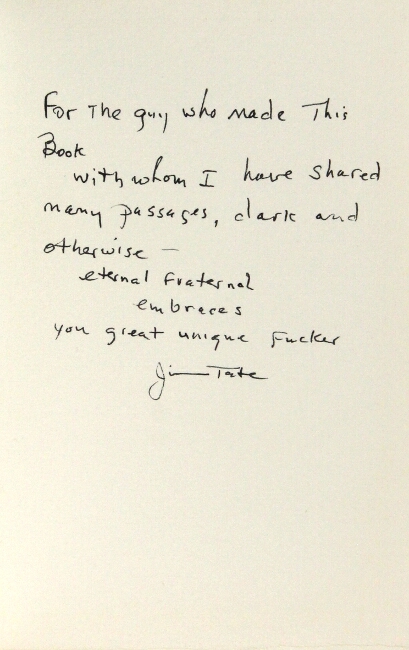 For The guy who made This
Book
with whom I have shared
many passages, dark and
otherwise —
eternal fraternal
embraces
you great unique fucker
Jim Tate